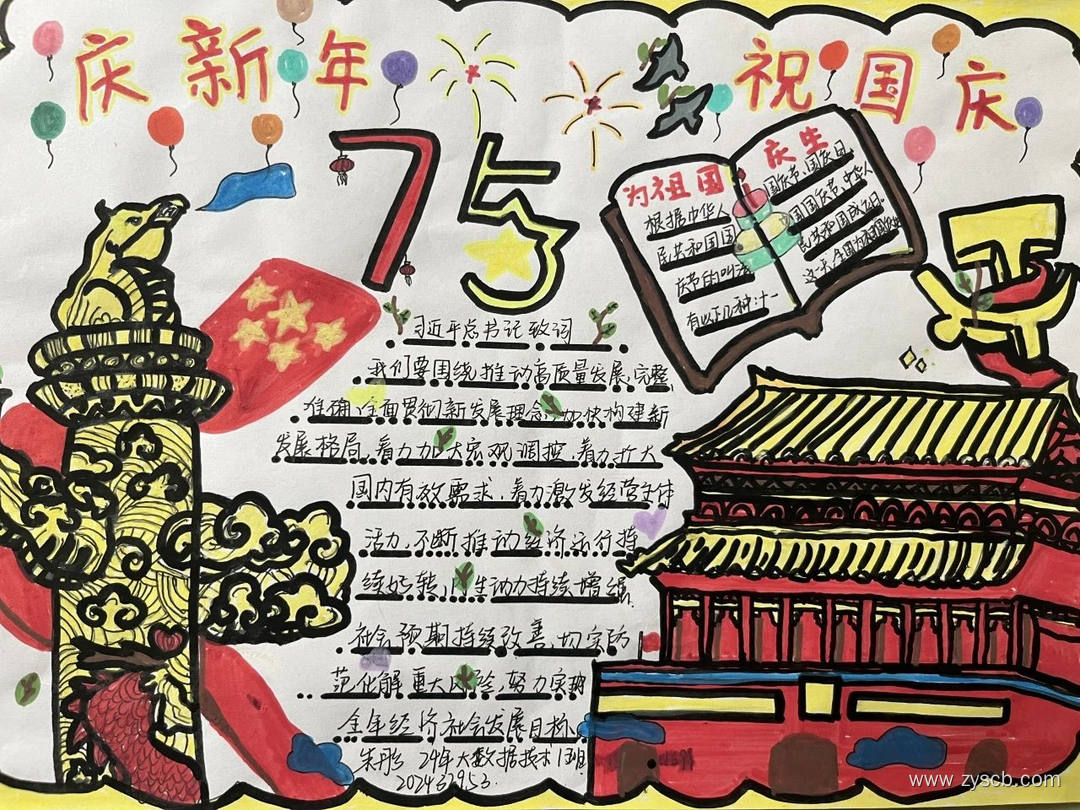 庆新年
祝国庆
75
为祖国
根据中华人
民共和国国
庆节的
有以下几种:十一
庆生
国庆节、国庆日、
国国庆节、中华人
民共和国成立日.
这一天全国为祖国
习近平总书记致词
我们要围绕推动高质量发展,完整
准确,全面贯彻新发展理念,加快构建新
发展格局.着力加大宏观调控,着力扩大
国内有效需求,着力激发经营主体
活力,不断推动经济运行持
续好转,内生动力持续增强,
社会预期持续改善,切实防
范化解重大风险,努力实现
全年经济社会发展目标.
朱彤 24年大数据技术1班
www.zyscb.com